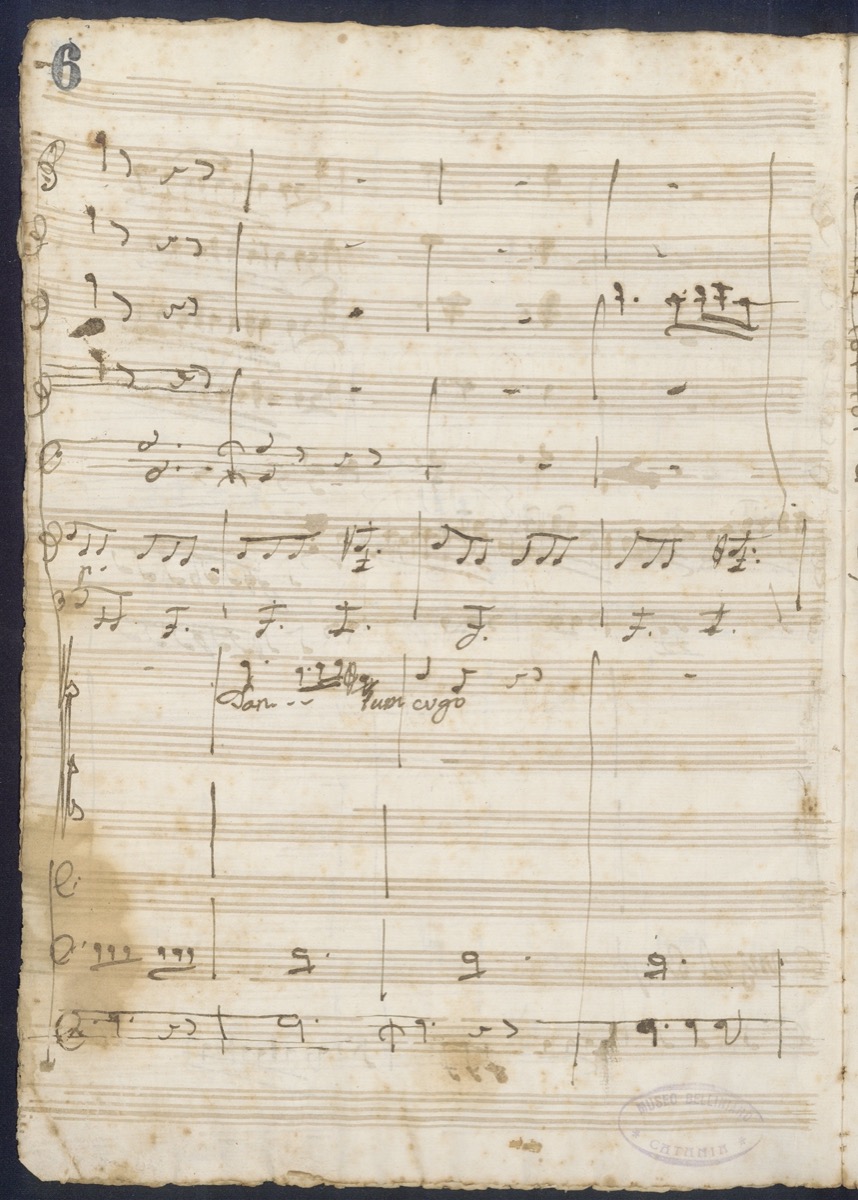 6
Tan - - tum ergo
MUSEO BELLINIANO
* CATANIA *